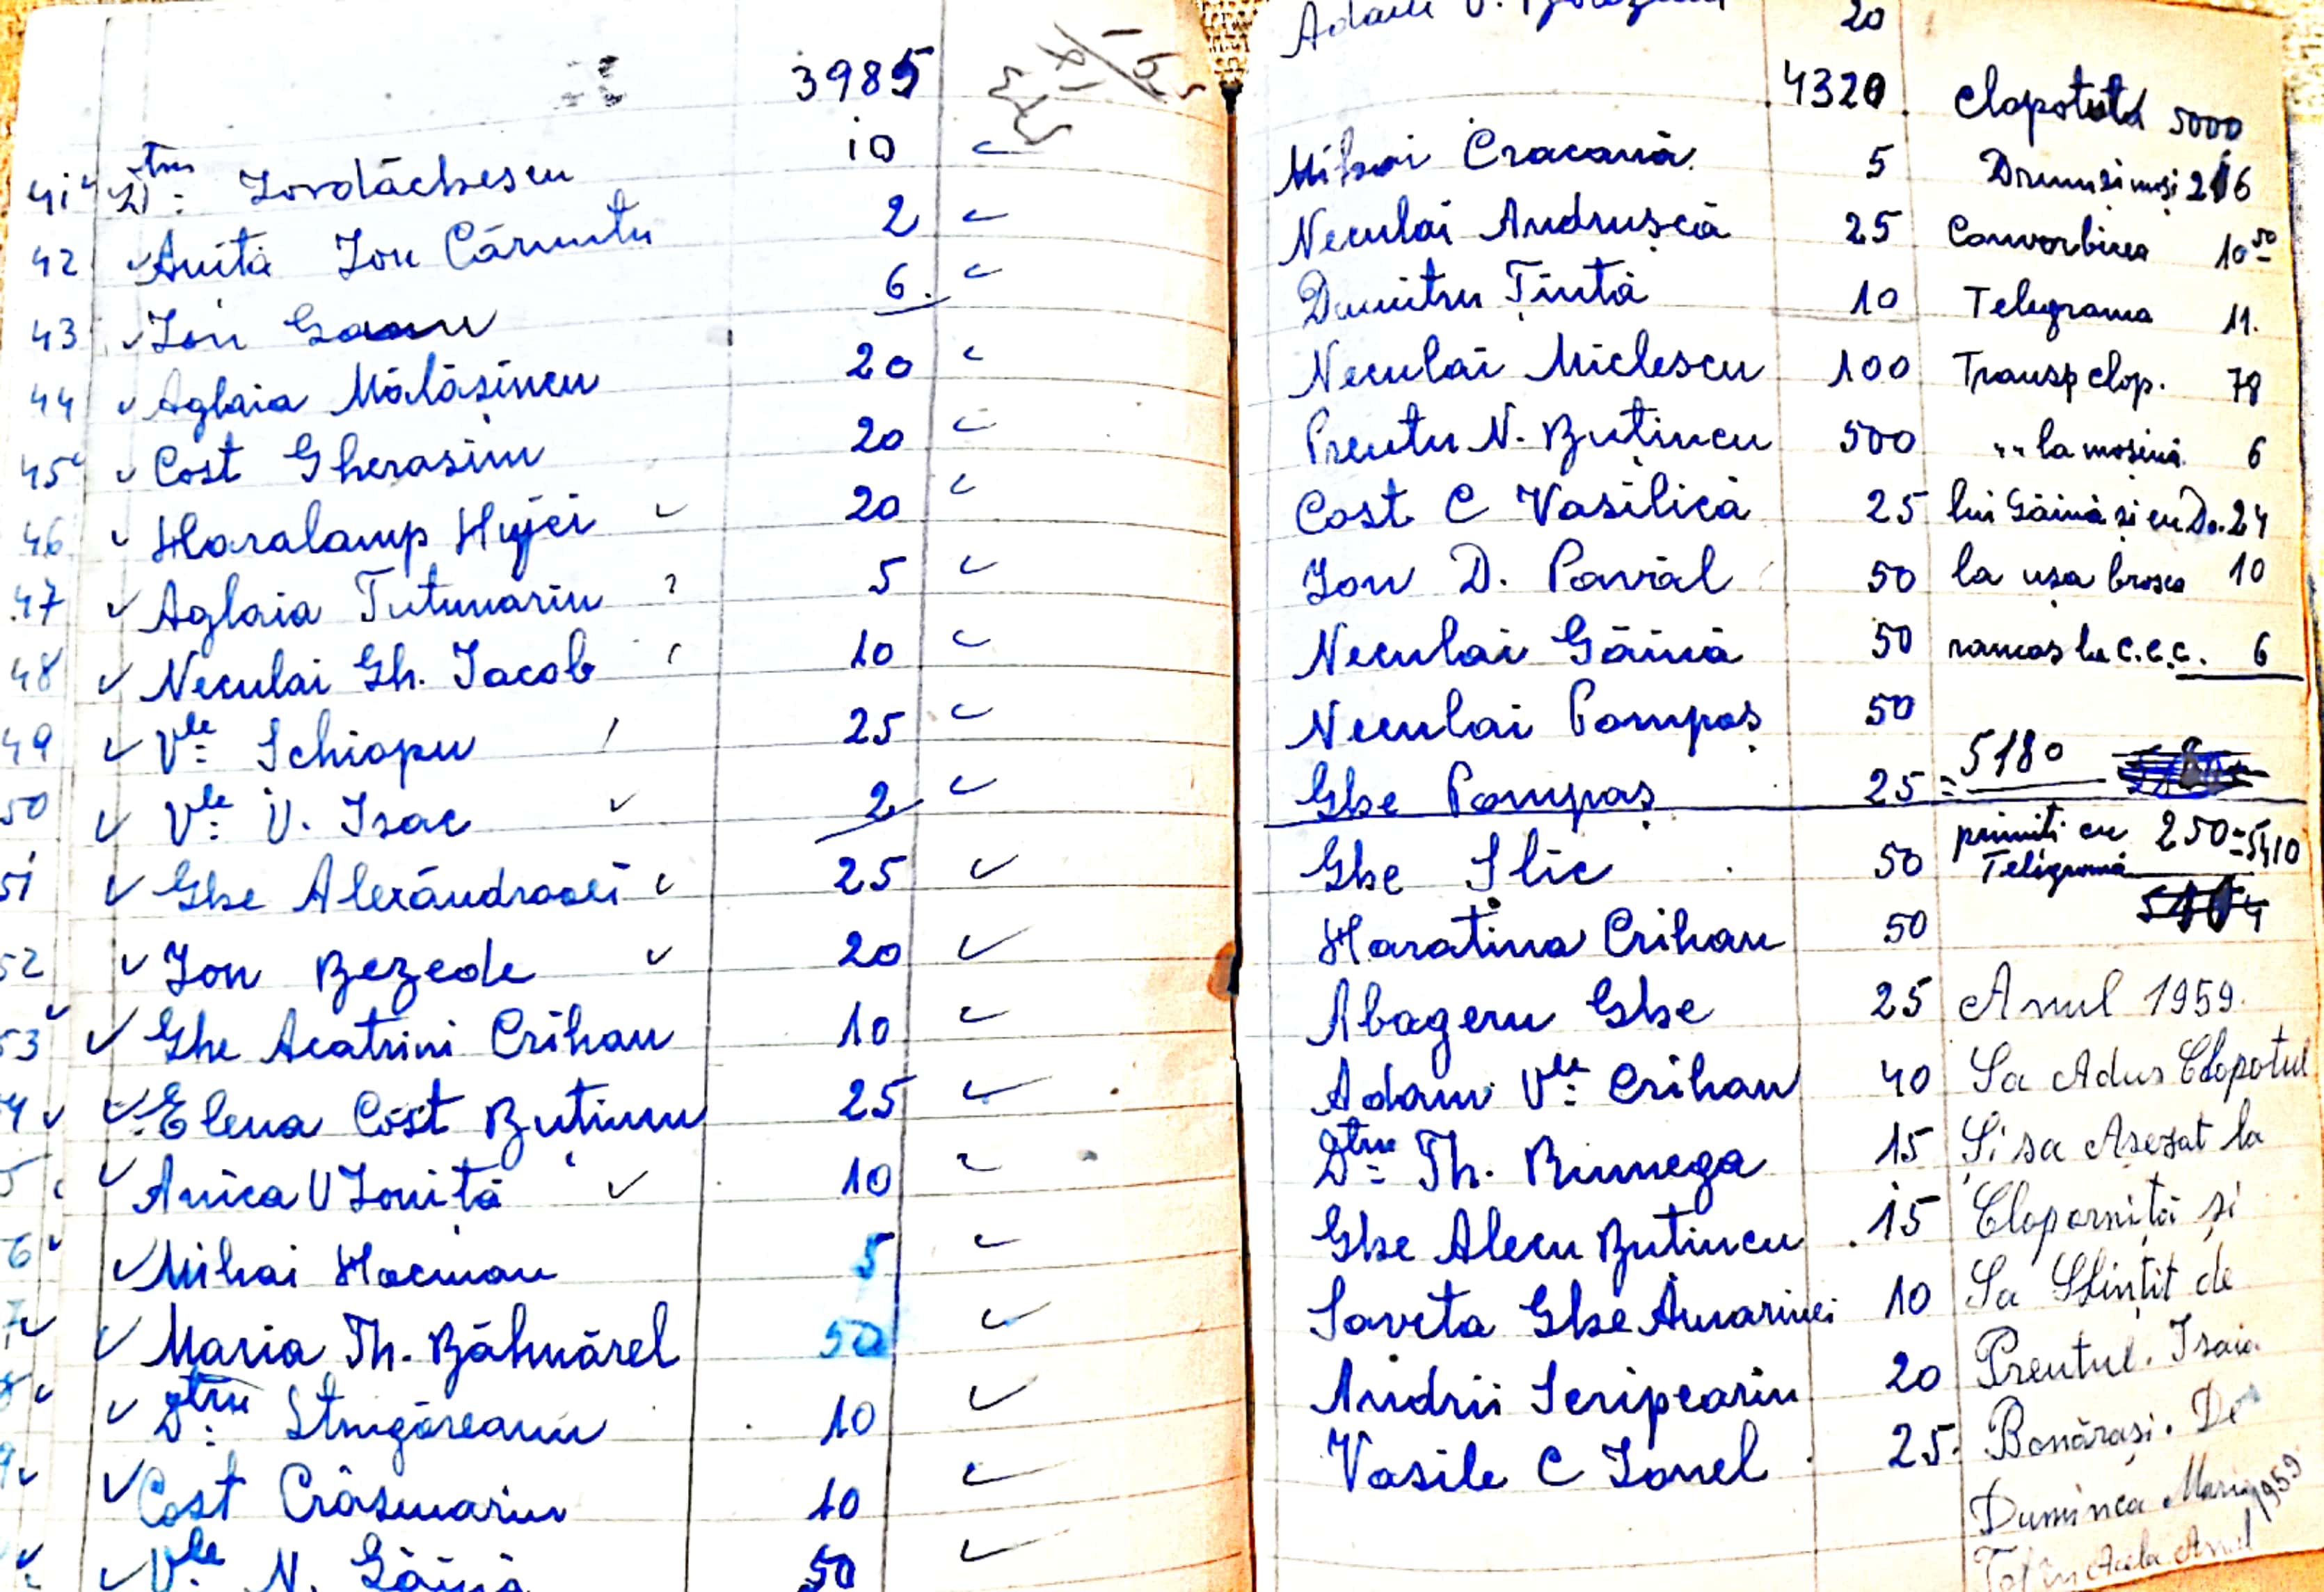 3985
41 Dtru Iordăchescu 10
42 Anita Ion Cărnutu 2
43 Ion 6
44 Aglaia Mălăsincu 20
45 Cost Gherasim 20
46 Haralamp Hujei 20
47 Aglaia Tutunariu 5
48 Neculai Gh. Iacob 10
49 Vle Schiopu 25
50 Vle V. Isac 2
51 Ghe Alexăndroaei 25
52 Ion Bezede 20
53 Ghe Acatrini Crihan 10
Elena Cost Butincu 25
Anica V Ioniță 10
Mihai Hocman 5
Maria Th. Băhnărel 50
Dtru Strugăreanu 10
Cost Crâsmariu 10
Vle N. Găină 50
Adam V. 20
4320
Mihai Cracană 5
Neculai Andrușcă 25
Dumitru Țintă 10
Neculai Miclescu 100
Preutu N. Buțincu 500
Cost C Vasilică 25
Ion D. Pavăl 50
Neculai Găină 50
Neculai Pompaș 50
Ghe Pompaș 25 = 5180
Ghe Ilie 50
Haratina Crihan 50
Abageru Ghe 25
Adam Vle Crihan 40
Dtru Th. Rumega 15
Ghe Alecu Buțincu 15
Saveta Ghe Amarinei 10
Andrii Scripcariu 20
Vasile C Ionel 25
Clopotul 5000
Drum și 216
Convorbirea 10 50
Telegrama 11.
Transp clop. 78
" " la mosină 6
lui Găină si cu D. 24
la ușa brosca 10
ramas la C.E.C. 6
primiti cu 250 = 5410
Teligramă
Anul 1959.
Sa Adus Clopotul
Si sa Așezat la
Clopornită și
Sa Sfințit de
Preutul. Isaia
Bonărași. De
Duminca 1959
Tot în Acela Anul